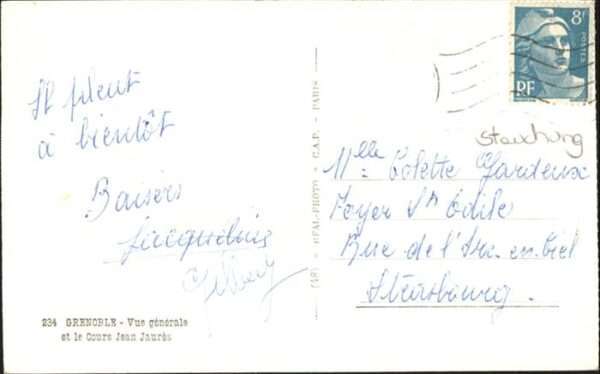 Il pleut
à bientôt
Baisers
Jacqueline
Gilbert
234 GRENOBLE - Vue générale
et le Cours Jean Jaurès
REAL-PHOTO - C.A.P. - PARIS
8F
POSTES
RF
Mlle Colette Jardeux
Foyer Ste Odile
Rue de l'Arc-en-Ciel
Strasbourg.